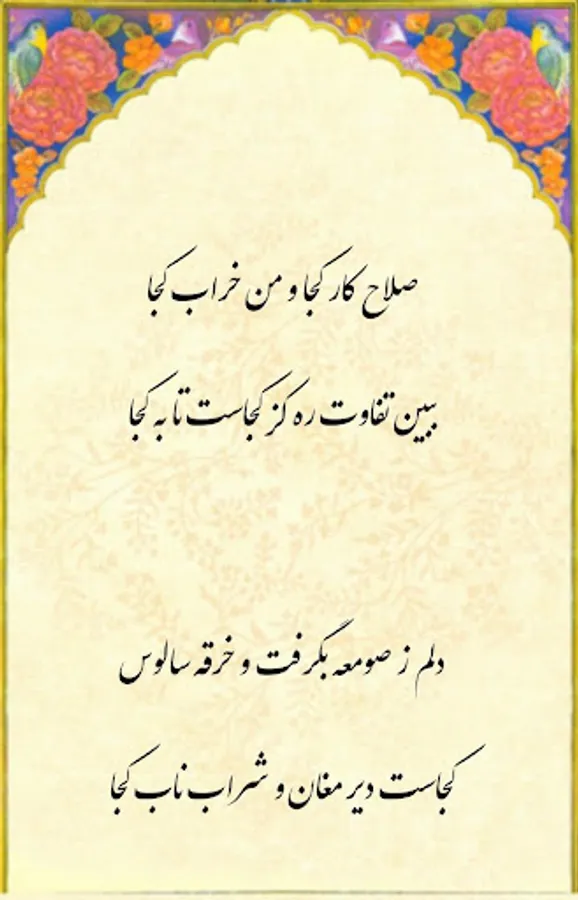 صلاح کار کجا و من خراب کجا
ببین تفاوت ره کز کجاست تا به کجا
دلم ز صومعه بگرفت و خرقه سالوس
کجاست دیر مغان و شراب ناب کجا